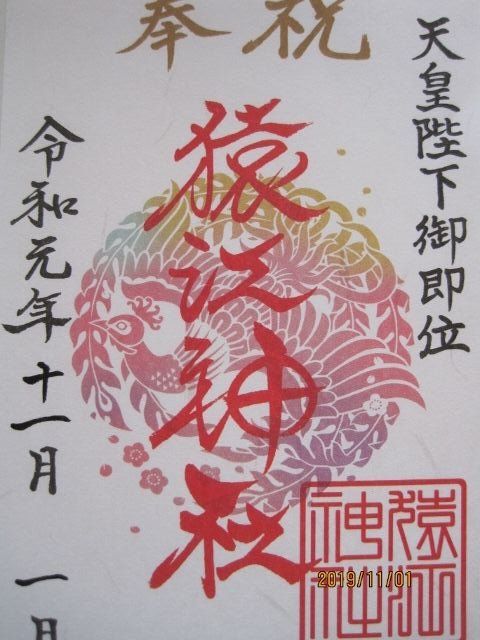 奉祝
天皇陛下御即位
猿江神社
令和元年十一月 一日
猿江
神社
2019/11/01